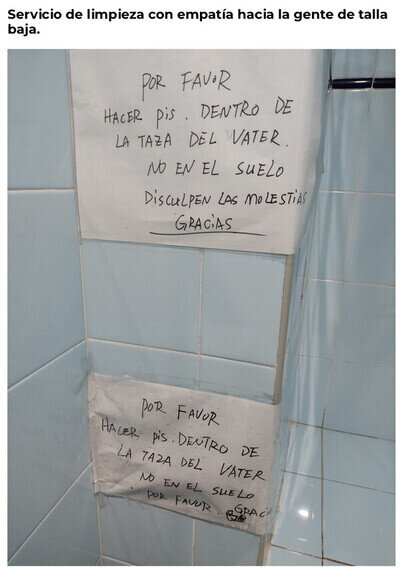 Servicio de limpieza con empatía hacia la gente de talla
baja.
POR FAVOR
HACER PIS. DENTRO DE
LA TAZA DEL VATER.
NO EN EL SUELO
DISCULPEN LAS MOLESTIAS
GRACIAS
POR FAVOR
HACER PIS. DENTRO DE
LA TAZA DEL VATER
NO EN EL SUELO
POR FAVOR. GRACIAS